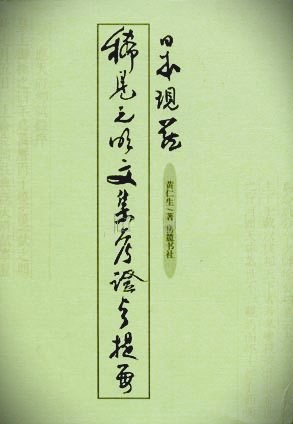 日本現藏
稀見元明文集考證与提要
黄仁生／著 岳麓书社